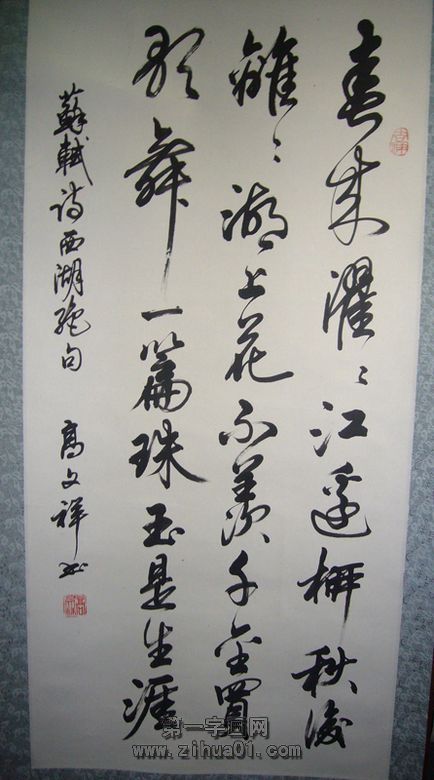 春来濯々江邊柳秋後
離々湖上花不羡千金買
歌舞一篇珠玉是生涯
蘇軾詩西湖絶句 高文祥书
第一字画网
www.zihua01.com